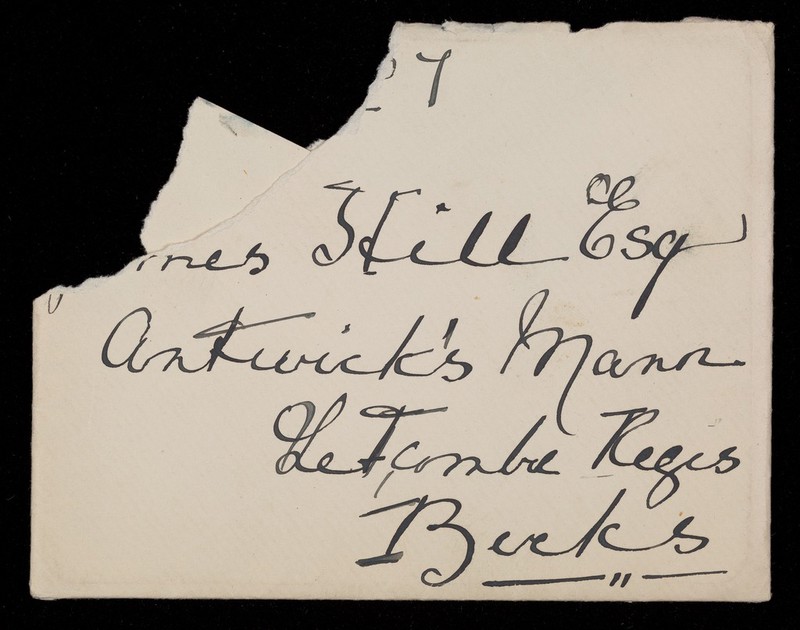 27
mes Hill Esq
Antwick's Manor
Letcombe Regis
Berks